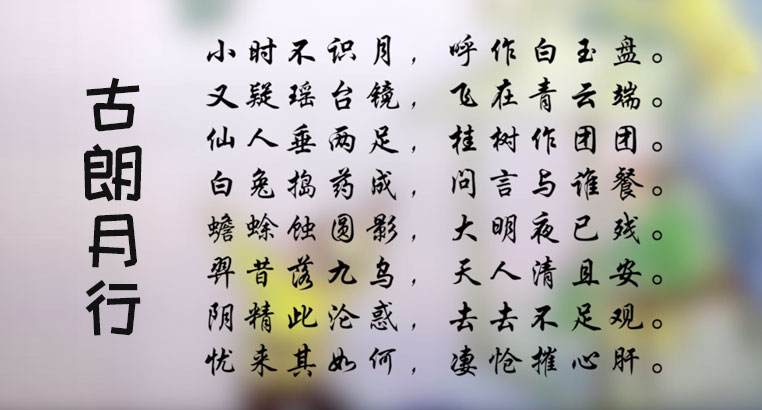 古朗月行
小时不识月，呼作白玉盘。
又疑瑶台镜，飞在青云端。
仙人垂两足，桂树作团团。
白兔捣药成，问言与谁餐。
蟾蜍蚀圆影，大明夜已残。
羿昔落九乌，天人清且安。
阴精此沦惑，去去不足观。
忧来其如何，凄怆摧心肝。